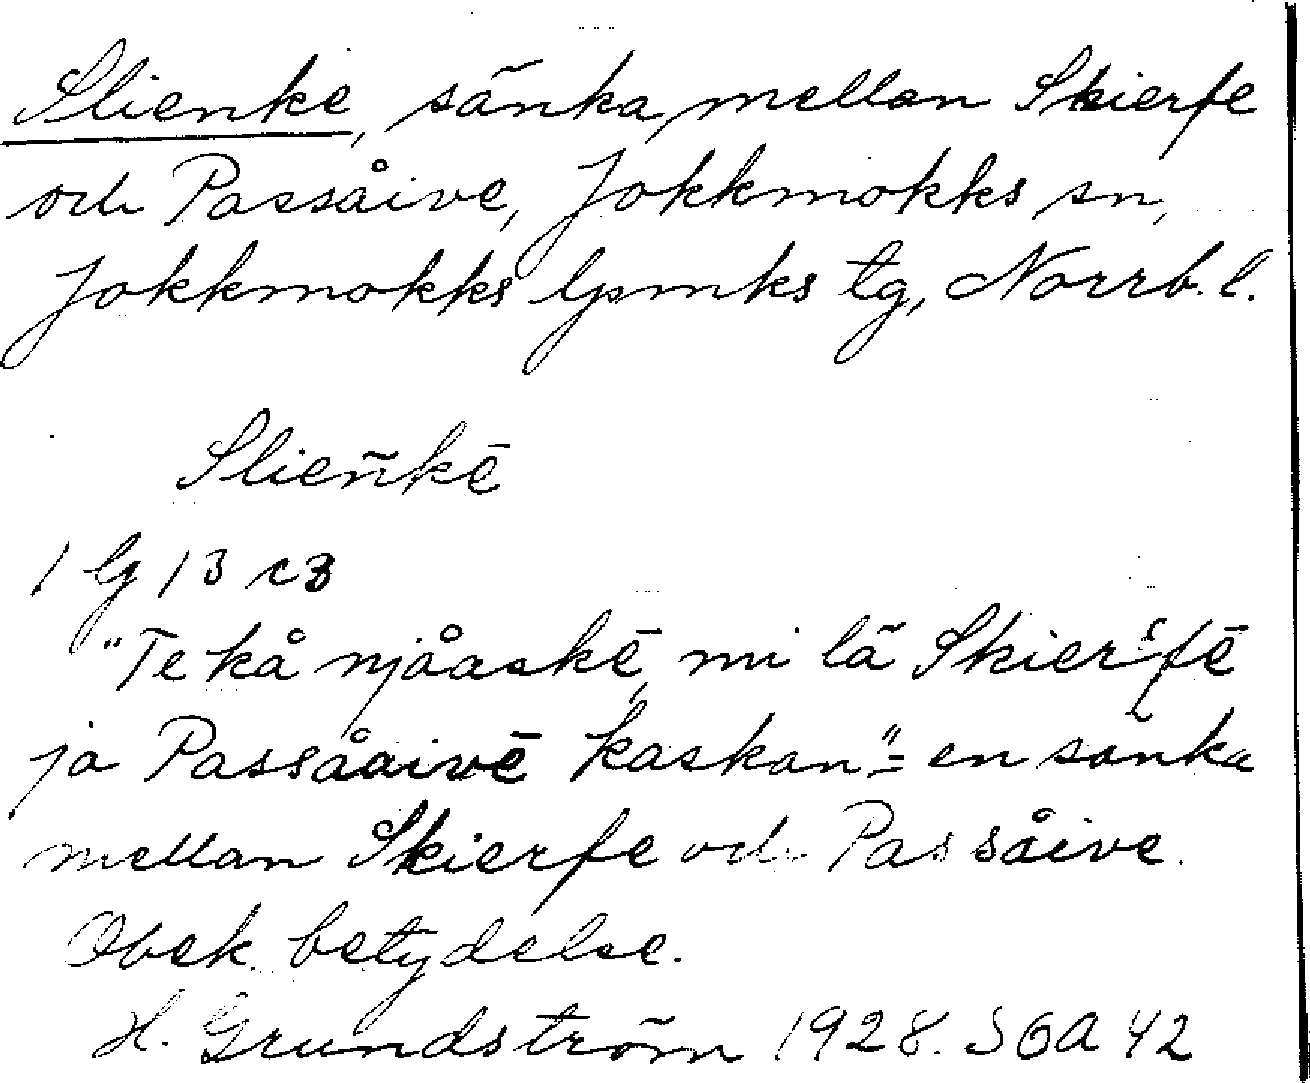 Slienke, sänka mellan Skierfe
och Passåive, Jokkmokks sn,
Jokkmokks lpmks tg, Norrb. l.
Slieñkē
1 lg 13 c3
"Te kå njåaskē, mi lä Skier‘fē
ja Passåaivē kaskan" = en sänka
mellan Skierfe och Passåive.
Obek. betydelse.
H. Grundström 1928. SOA 42